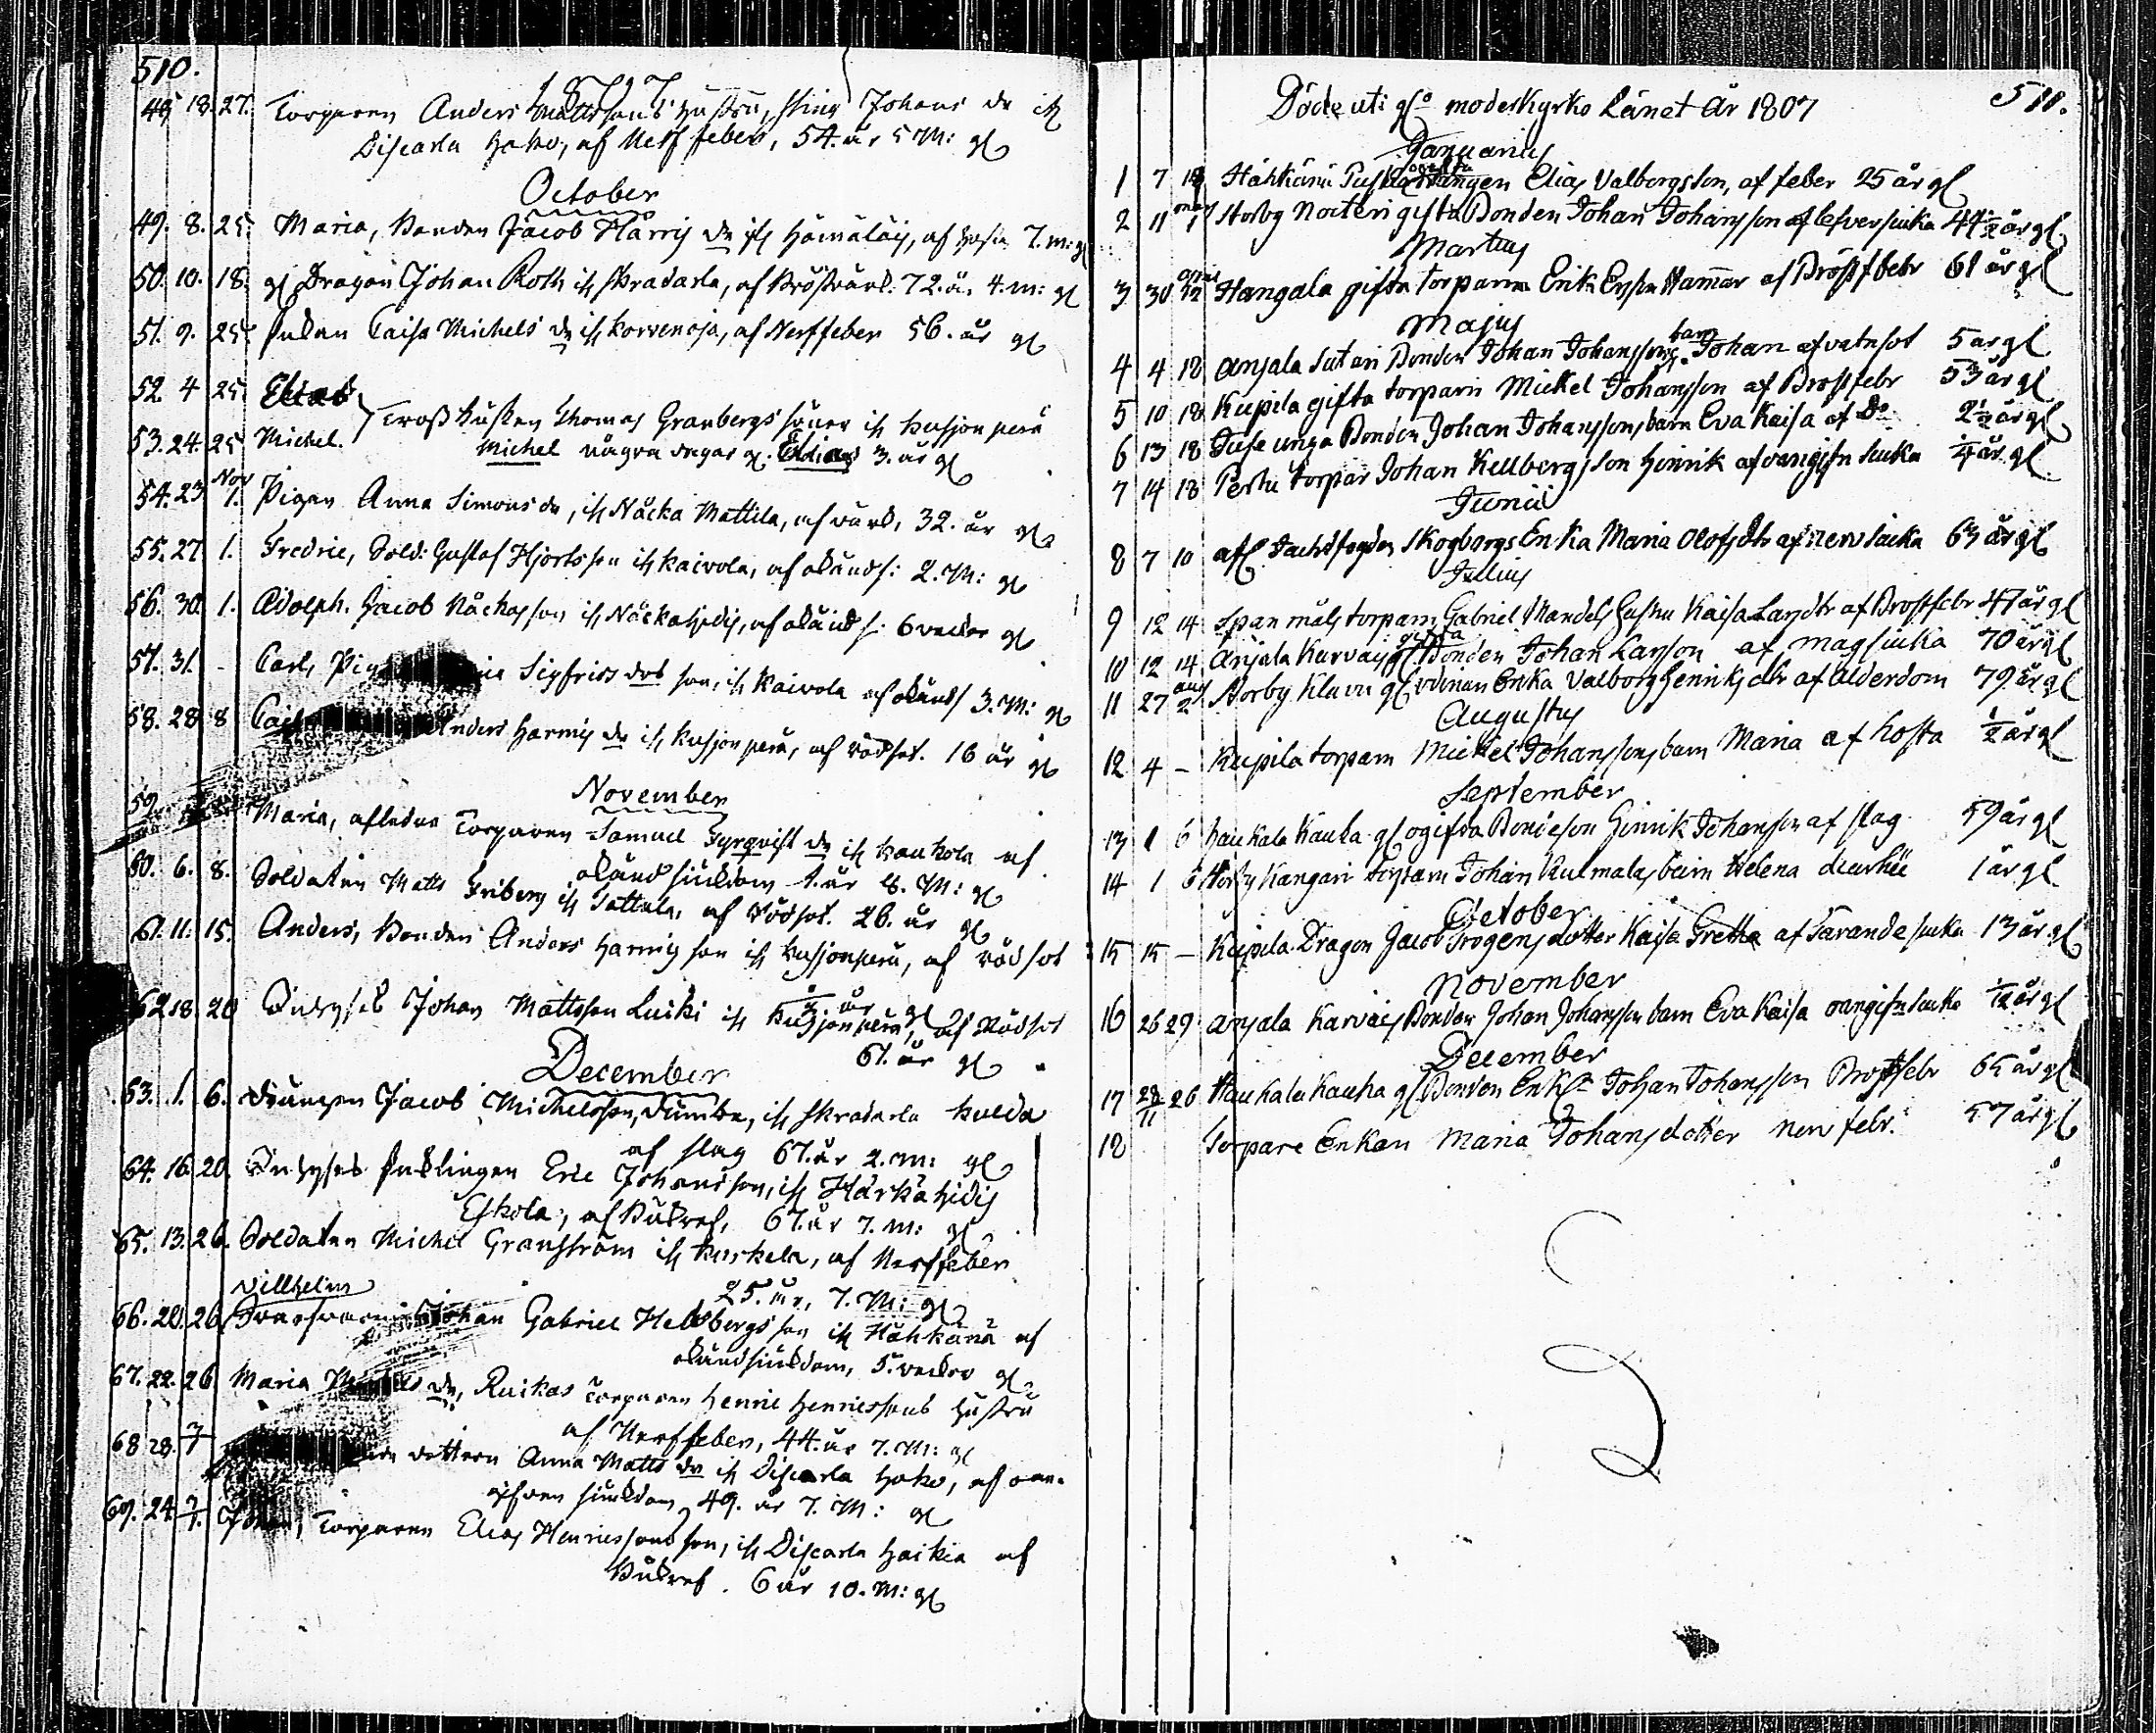 510.
1807
48 18. 27. Torparen Anders Mattssons hustru, Stina Johans dr ifr
Discarla Hako, af Nerf feber, 54. år 5 M: gl
October
49. 8. 25. Maria, Bonden Jacob Harris dr ifr Hämäläis, af hosta 7. m: gl
50. 10. 18. gl Dragon Johan Roth ifr Skradarla, af Bröstvärk. 72. år 4. m: gl
51. 9. 25. Enkan Caisa Michels dr ifr Korvenoja, af Nerffeber 56. år gl
52. 4 25. Elias
Trosskusken Thomas Granbergs söner ifr Kusjonperä
53. 24. 25 Michel.
Michel några dagar gl. Elias 3. år gl
54. 23 Nov 1. Pigan Anna Simons dr, ifr Näcka Mattila, af värk, 32. år gl
55. 27. 1. Fredric, Sold: Gustaf Hjorts son ifr Kaivola, af okänd s: 2. M: gl
56. 30. 1. Adolph. Jacob son ifr af okänd s: 6 veckor gl
57. 31. - Carl, Sigfrids drs son, ifr Kaivola af okänd s 3. M: gl
58. 28 8 Anders Harris dr ifr Kusjonperä, af rödsot. 16 år gl
November
59. Maria, aflidne Torparen Samuel dr ifr Kaukola af
okänd siukdom 1. år 8. M: gl
60. 6. 8. Soldaten Matts Friberg ifr Tattula, af Rödsot. 26. år gl
61. 11. 15. Anders, Bonden Anders Harris son ifr Kusjonperä, af rödsot
år gl
62. 18. 20 Inhyses Johan Mattsson Luiki ifr Kusjonperä, af Rödsot
61. år gl
December
63. 1. 6. Drängen Jacob Michelsson, dumbe, ifr Skradarla
af slag 67. år 2. m: gl
64. 16. 20. Inhyses Enklingen Eric Johansson, ifr
Eskola, af Bukref, 67. år 7. m: gl
65. 13. 26. Soldaten Michel Granström ifr Kuskela, af Nerffeber
25. år, 7. M: gl
Villhelm
66. 20. 26 Johan Gabriel Helsbergs son ifr Hähkänä af
okänd siukdom, 5. veckor gl
67. 22. 26 Maria dr, Ruikas Torparen Henric Henricssons hustru
af Nerffeber, 44. år 7. M: gl
68 28. 7 dottern Anna Matts dr ifr Discarla Hako, af oan-
gifven siukdom, 49. år 7. M: gl
69. 24. 7. Johan, Torparen Elias Henricssons son, ifr Discarla Haikia af
Bukref. 6 år 10. M: gl
511.
Döde uti gls moderkyrko Länet År 1807
Januarius
1 7 18 Hähkänä ogifta drängen Elias Valborgsson, af feber 25 år gl
2 11 1 Storby Nouteri gifta Bonden Johan Johansson af lefversiuka 49 1/2 år gl
Martius
3 30 12 Hangala gifta torparen Erik Erssn Hammar af Bröstfebr 61 år gl
Majus
4 4 18 Anjala Sutari Bonden Johan Johanssons barn Johan af vatusot 5 år gl
5 10 18 Kupila gifta torparn Mickel Johansson af Bröstfebr 53 år gl
6 13 18 Tuse unga Bonden Johan Johanssons barn Eva Kaisa af Do 2 1/2 år gl
7 14 18 Perhe torpar Johan Kellbergs son Hinrik af oangifn siuka 1/4 år gl
Junii
8 7 10 afl. Skogbergs Enka Maria Olofsdtr af nerv siuka 63 år gl
Julius
9 12 14 Spanmåls torparn Gabriel Mandels hustru Kaisa Larsdtr af Bröstfebr 47 år gl
10 12 14 Anjala Karvais gl gifta Bonden Johan Larsson af magsiuka 70 år gl
11 27 aug 2 Storby Klavu gl Enka Valborg Henriksdtr af Alderdom 79 år gl
Augustus
12 4 - Kupila torparn Mickel Johanssons barn Maria af hosta 1/2 år gl
September
13 1 6 Haukala Kauha gl ogifta Bondeson Hinrik Johansson af slag 59 år gl
14 1 6 Storby Kangari torparn Johan Kulmalas barn Helena 1 år gl
October
15 15 - Kupila Dragon Jacob Trogens dotter Kaisa Gretha af Tärande siuka 13 år gl
November
16 26 29 Anjala Karvais Bonden Johan Johansson barn Eva Kaisa oangifn siuka 1/12 år gl
December
17 28/11 26 Haukala Kauha gl Bonden Enkl Johan Johansson Bröstfebr 65 år gl
18 Torpare Enkan Maria Johansdotter nerv febr. 57 år gl